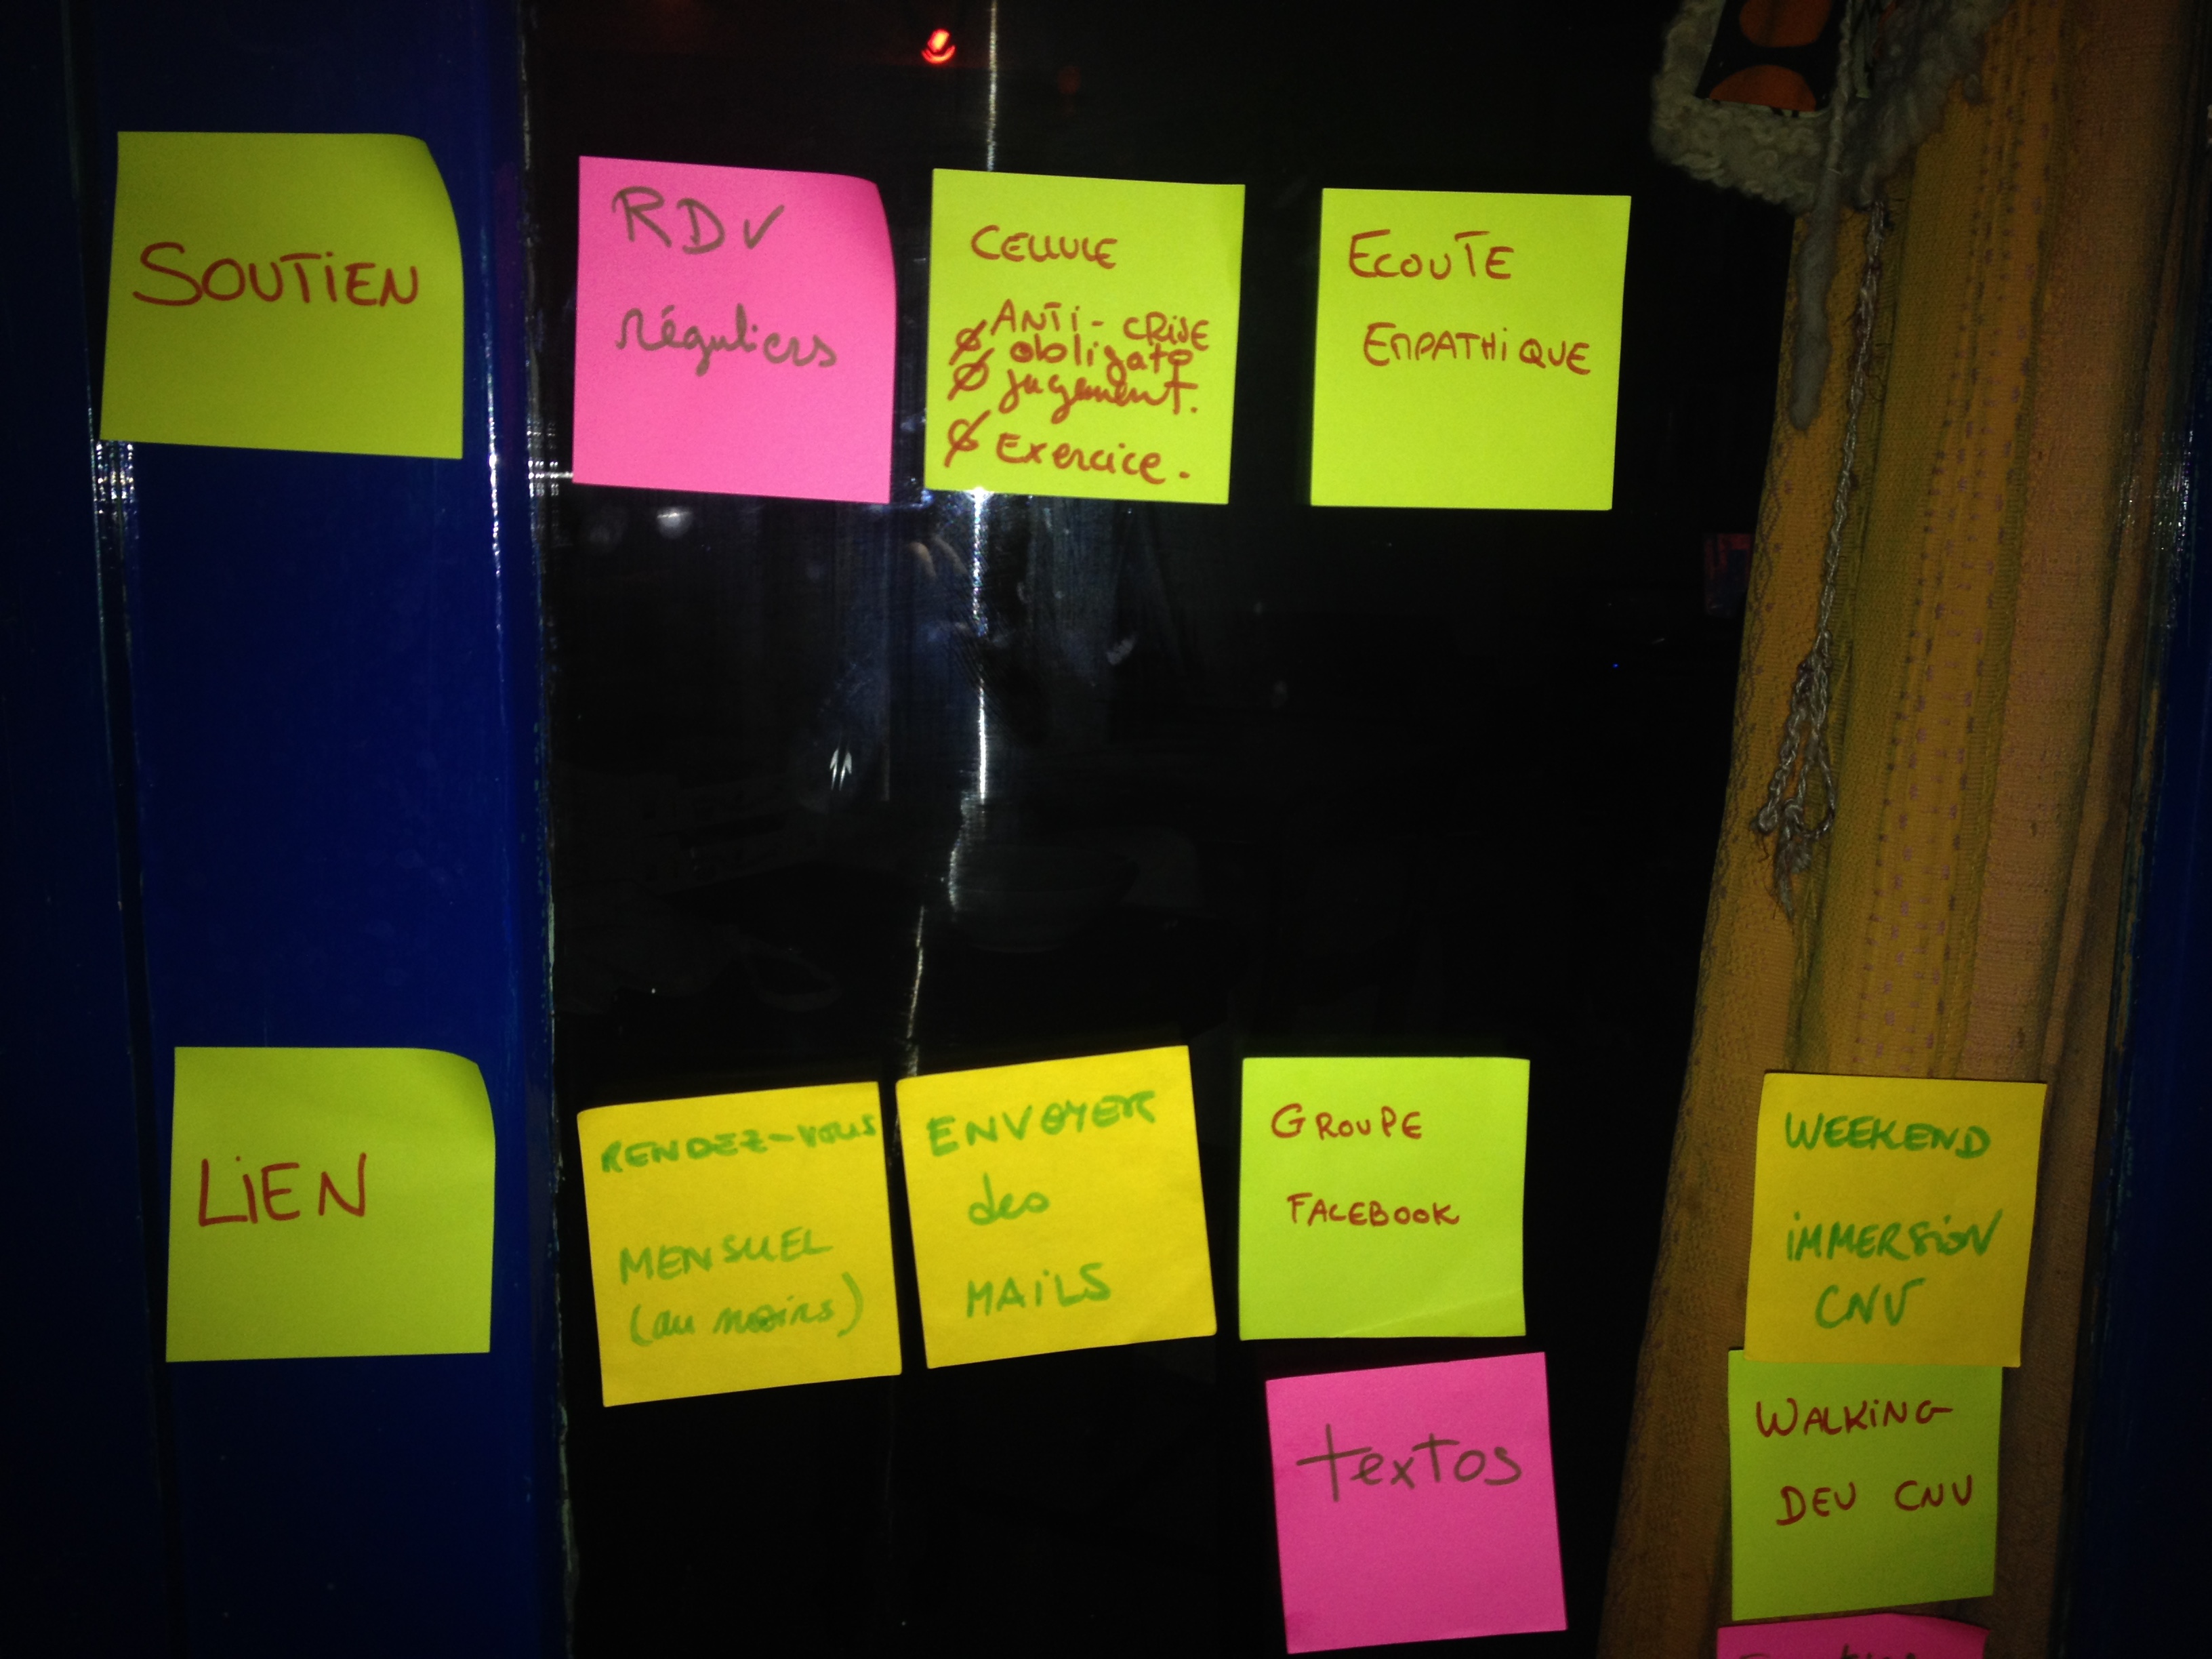 SOUTIEN
RDV
réguliers
CELLULE
ANTI-CRISE
Ø obligato
Ø jugement.
Ø Exercice.
ECOUTE
EMPATHIQUE
LIEN
RENDEZ-VOUS
MENSUEL
(au moins)
ENVOYER
des
MAILS
GROUPE
FACEBOOK
textos
WEEKEND
IMMERSION
CNV
WALKING
DEV CNV